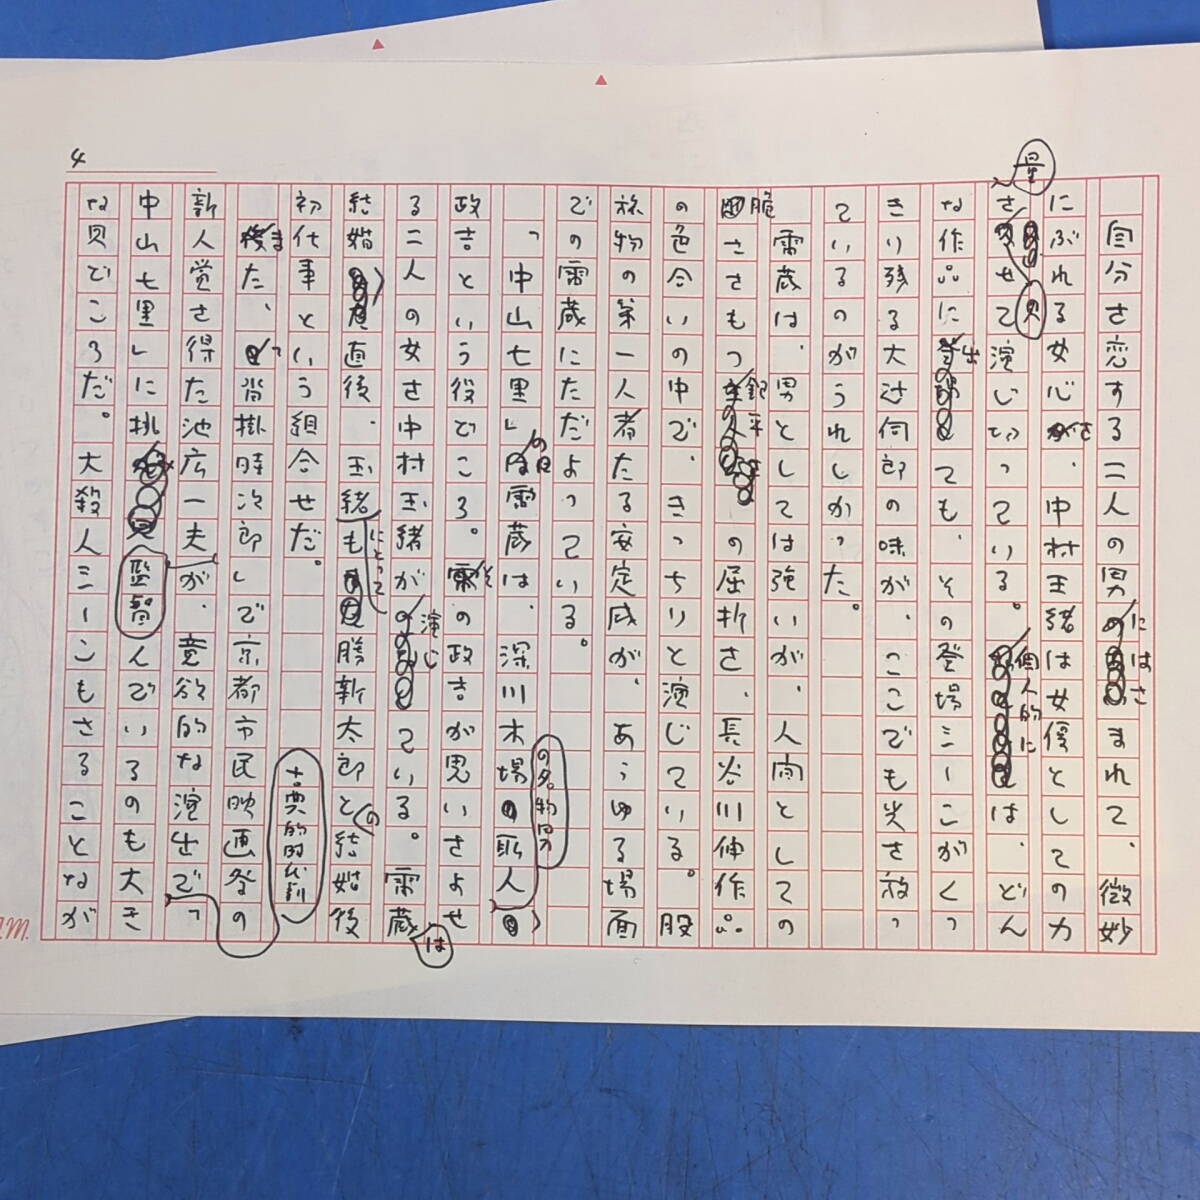 4
自分を恋する二人の男にはさまれて、微妙
にぶれる女心を、中村玉緒は女優としての力
量を見せて演じ切っている。個人的には、どん
な作品に出ても、その登場シーンがくっ
きり残る大辻伺郎の味が、ここでも光を放っ
ているのがうれしかった。
雷蔵は、男としては強いが、人間としての
脆さをもつ銀平の屈折を、長谷川伸作品
の色合いの中で、きっちりと演じている。股
旅物の第一人者たる安定感が、あらゆる場面
での雷蔵にただよっている。
「中山七里」の雷蔵は、深川木場の名物男
政吉という役どころ。その政吉が思いをよせ
る二人の女を中村玉緒が演じている。雷蔵は
結婚直後、玉緒にとっても勝新太郎との結婚後
初仕事という組合せだ。
また、「沓掛時次郎」で京都市民映画祭の
新人賞を得た池広一夫が、意欲的な演出で古典的時代劇「
中山七里」に挑んでいるのも大き
な見どころだ。大殺人シーンもさることなが